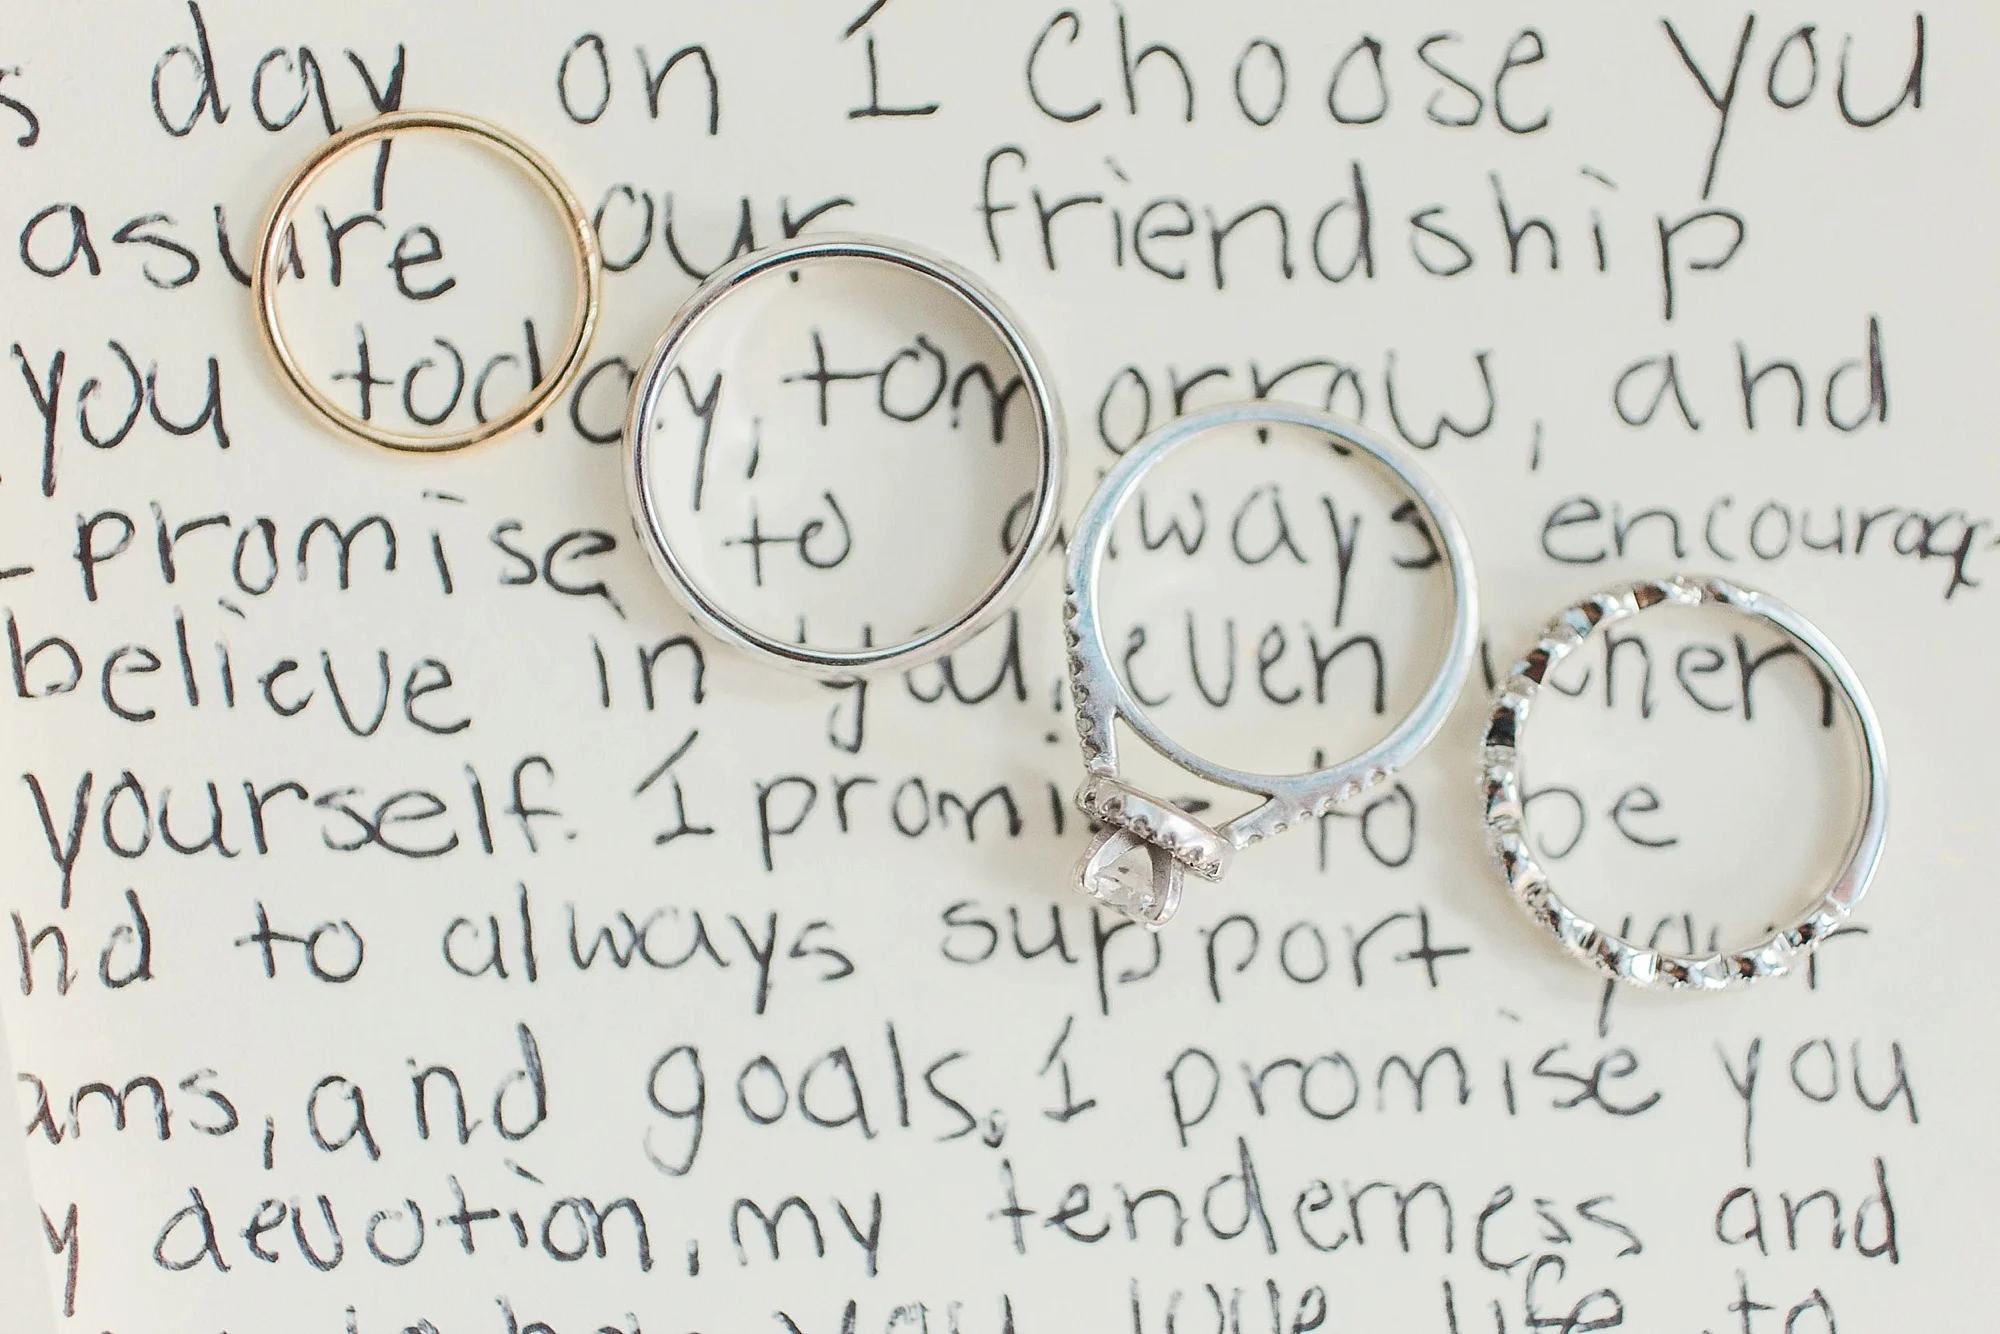 s day on I choose you
asure our friendship
you today, tomorrow, and
I promise to always encourage
believe in you, even when
yourself. I promise to be
nd to always support your
ams, and goals. I promise you
y devotion, my tenderness and
you love life to